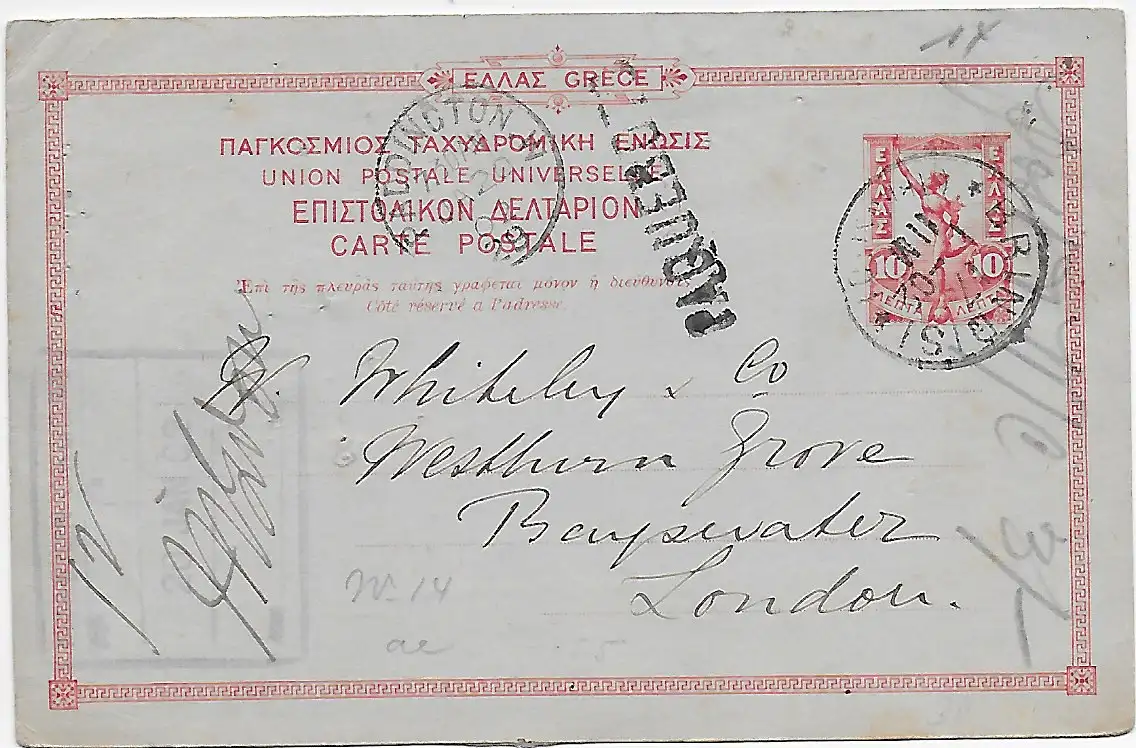 14
ΕΛΛΑΣ GRÈCE
ΠΑΓΚΟΣΜΙΟΣ ΤΑΧΥΔΡΟΜΙΚΗ ΕΝΩΣΙΣ
UNION POSTALE UNIVERSELLE
ΕΠΙΣΤΟΛΙΚΟΝ ΔΕΛΤΑΡΙΟΝ
CARTE POSTALE
Ἐπὶ τῆς πλευρᾶς ταύτης γράφεται μόνον ἡ διεύθυνσις
Côté réservé a l'adresse.
PADDINGTON W
PAQUEBOT
ΕΛΛΑΣ ΕΛΛΑΣ
10 10
ΛΕΠΤΑ ΛΕΠΤΑ
BRINDISI
W. Whiteley & Co
Westburn Grove
Bayswater
London.
12
No. 14
ae
3/-